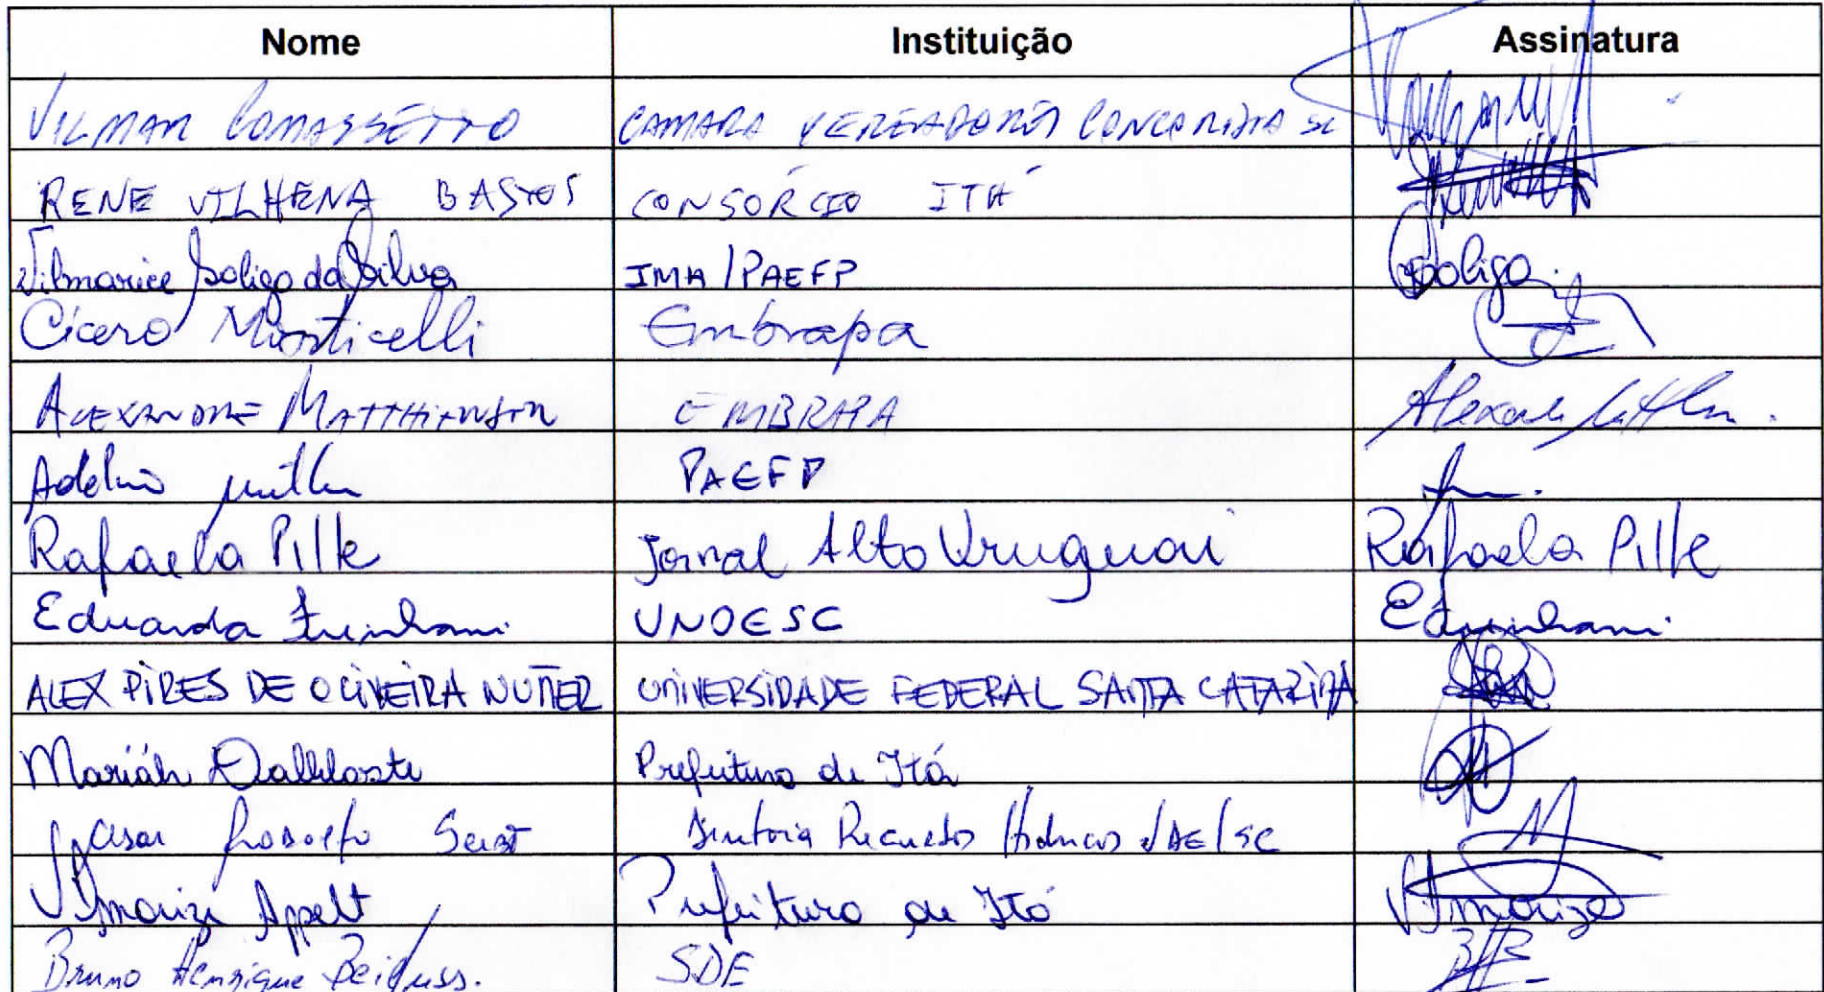 Nome Instituição Assinatura
VILMAR COMASSETTO CAMARA VEREADORES CONCORDIA SC
RENE VILHENA BASTOS CONSÓRCIO ITÁ
Vilmarice Soligo da Silva IMA/PAEFP Soligo.
Cícero Monticelli Embrapa
ALEXANDRE MATTHIENSEN EMBRAPA
Adelmo PAEFP
Rafaela Pille Jornal Alto Uruguai Rafaela Pille
Eduarda UNOESC
ALEX PIRES DE OLIVEIRA NUÑER UNIVERSIDADE FEDERAL SANTA CATARINA
Mariáh Prefeitura de Itá
Cesar Rodolfo Seibt Diretoria Recursos Hídricos /SC
Vilmarize Appelt Prefeitura de Itá Vilmarize
Bruno Henrique SDE